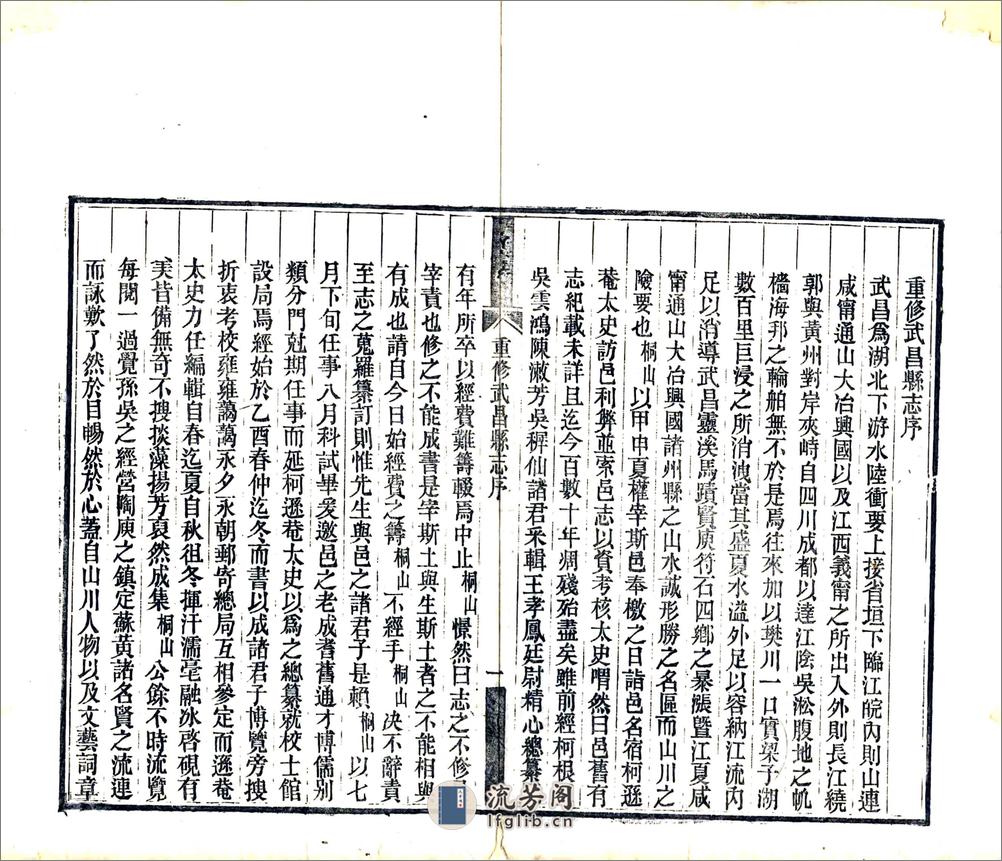 重修武昌縣志序
武昌爲湖北下游水陸衝要上接省垣下臨江皖內則山連
咸甯通山大冶興國以及江西義甯之所出入外則長江繞
郭與黃州對岸夾峙自四川成都以達江陰吳淞腹地之帆
檣海邦之輪舶無不於是焉往來加以樊川一口實梁子湖
數百里巨浸之所消洩當其盛夏水溢外足以容納江流內
足以消導武昌靈溪馬蹟賢庾符石四鄉之暴漲曁江夏咸
甯通山大冶興國諸州縣之山水誠形勝之名區而山川之
險要也桐山以甲申夏權宰斯邑奉檄之日詣邑名宿柯遜
菴太史訪邑利弊並索邑志以資考核太史喟然曰邑舊有
志紀載未詳且迄今百數十年凋殘殆盡矣雖前經柯根
吳雲鴻陳漵芳吳稺仙諸君采輯王孝鳳廷尉精心總纂
重修武昌縣志序
一
有年所卒以經費難籌輟焉中止桐山憬然曰志之不修
宰責也修之不能成書是宰斯土與生斯土者之不能相與
有成也請自今日始經費之籌桐山不經手桐山决不辭責
至志之蒐羅纂訂則惟先生與邑之諸君子是賴桐山以七
月下旬任事八月科試畢爰邀邑之老成耆舊通才博儒別
類分門尅期任事而延柯遜菴太史以爲之總纂就校士館
設局焉經始於乙酉春仲迄冬而書以成諸君子博覽旁搜
折衷考校雍雍藹藹永夕永朝郵寄總局互相參定而遜菴
太史力任編輯自春迄夏自秋徂冬揮汗濡毫融冰啓硯有
美皆備無奇不搜掞藻揚芳裒然成集桐山公餘不時流覽
每閱一過覺孫吳之經營陶庾之鎮定蘇黃諸名賢之流連
而詠歎了然於目暢然於心蓋自山川人物以及文藝詞章
流芳阁
lfglib.cn